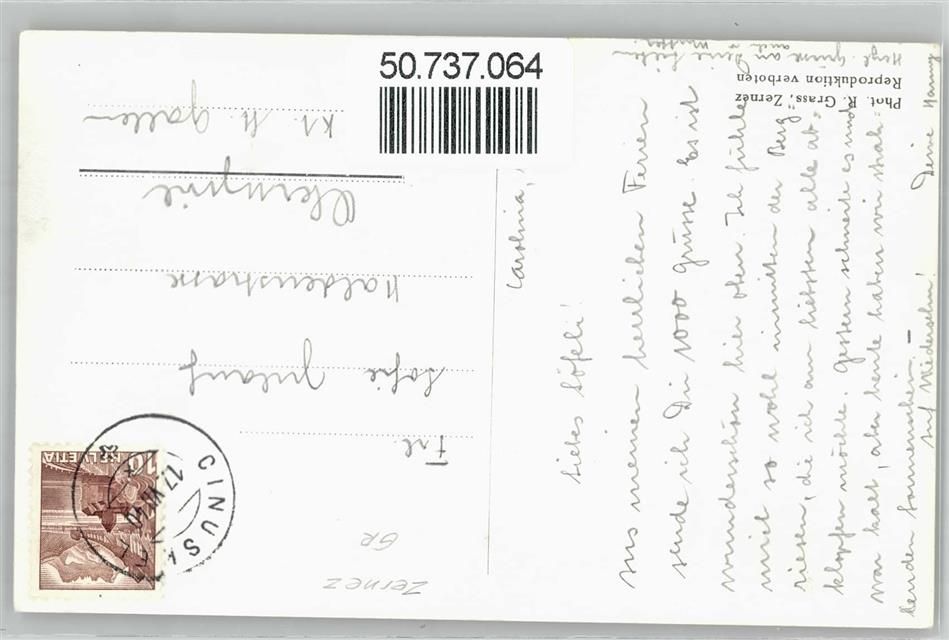 50.737.064
Phot. R. Grass, Zernez
Reproduktion verboten
Carolina,
Liebes Söfeli!
Aus meinen herrlichen Ferien
sende ich Dir 1000 Grüsse. Es ist
wunderschön hier oben. Ich fühle
mich so wohl inmitten der Berg-
riesen, die ich am liebsten alle ab-
klopfen möchte. Gestern schneite es und
war kalt, aber heute haben wir strah-
lenden Sonnenschein –
Auf Wiedersehn!
Deine Hanny
Herzl. Grüsse an Deine lieben
auch Mutter.
Frl.
Sofie
Haldenstrasse
Oberuzwil
Kt. St. Gallen
HELVETIA
10
CINUS
Zernez
GR